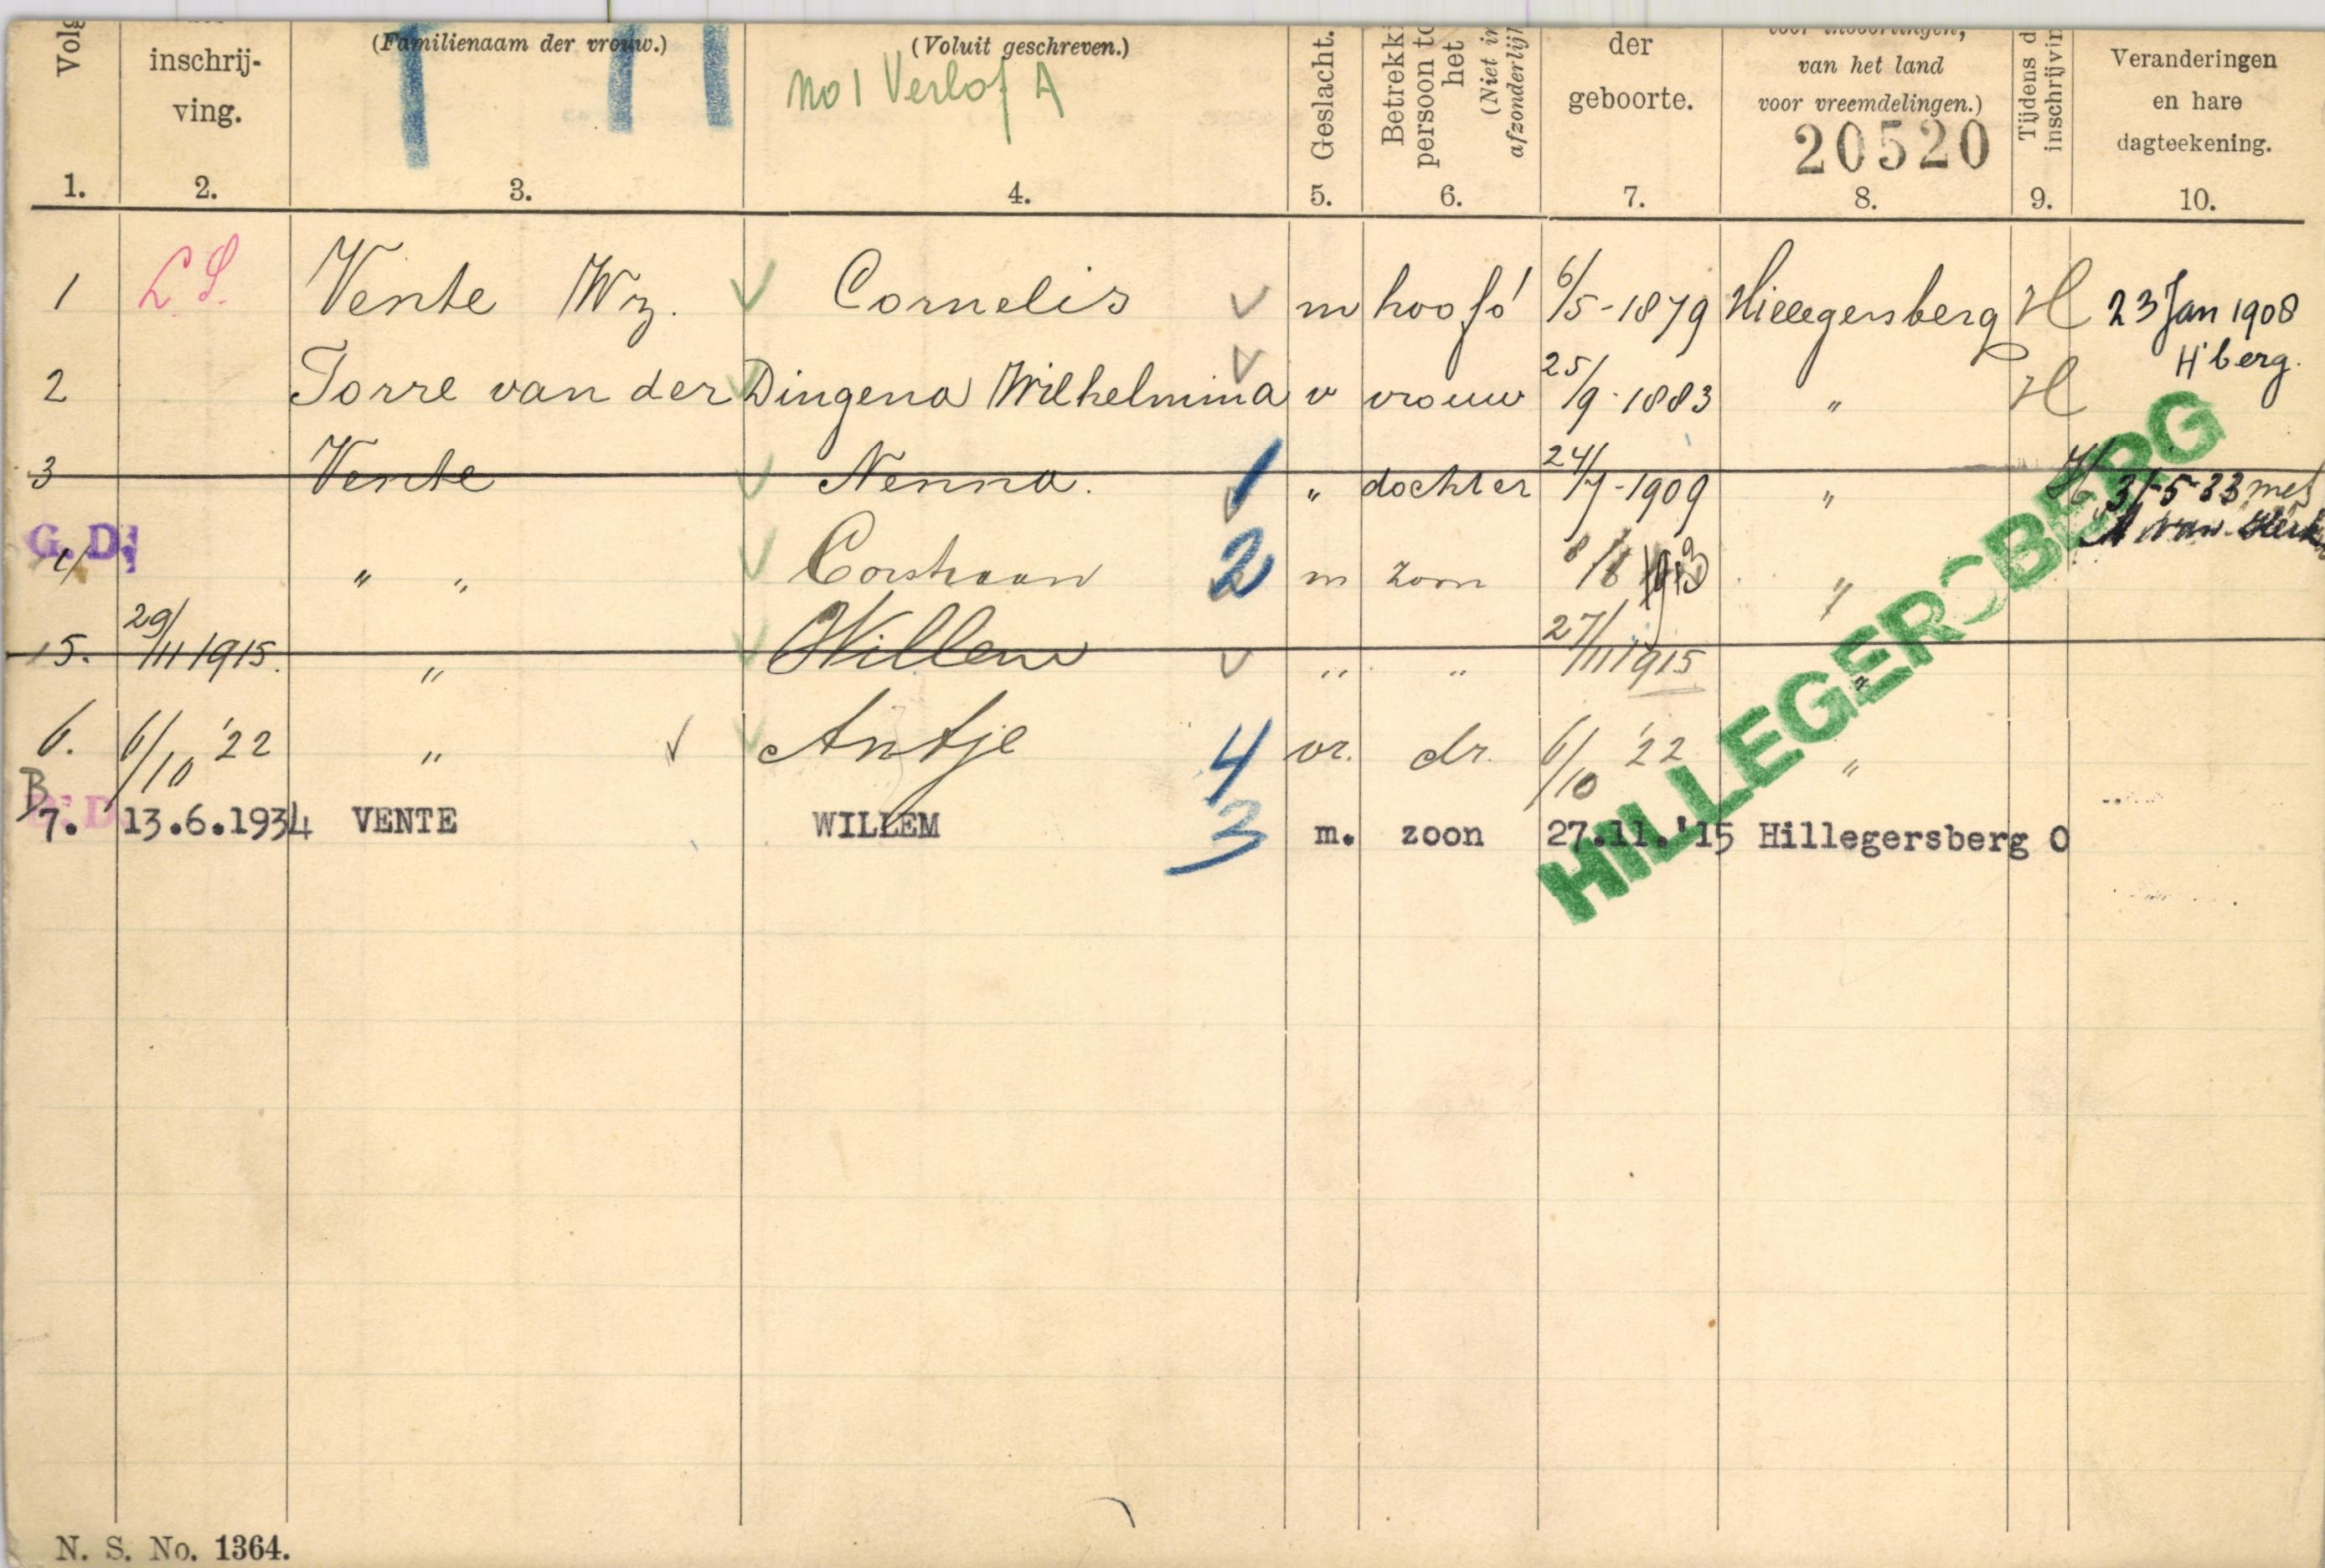 Volg
inschrij-
ving.
(Familienaam der vrouw.)
(Voluit geschreven.)
no 1 Verlof A
Geslacht.
Betrekki
persoon to
het
(Niet in
afzonderlijk
der
geboorte.
voor inboorlingen,
van het land
voor vreemdelingen.)
20520
Tijdens d
inschrijvin
Veranderingen
en hare
dagteekening.
1. 2. 3. 4. 5. 6. 7. 8. 9. 10.
1 L.S. Vente Wz. Cornelis m hoofd 6/5-1879 Hillegersberg H 23 Jan 1908
H'berg.
2 Torre van der Dingena Wilhelmina v vrouw 25/9-1883 " H
3 Vente Nenna. 1 " dochter 24/7-1909 " H 31-5-33 met
A van Herk
G.D.
4 " " Corstiaan 2 m zoon 8/8 1913 "
5. 29/11 1915. " Willem " " 27/11 1915 "
6. 6/10 '22 " Antje 4 vr. dr. 6/10 '22 "
B
7. 13.6.1934 VENTE WILLEM 3 m. zoon 27.11.'15 Hillegersberg O
HILLEGERSBERG
N. S. No. 1364.